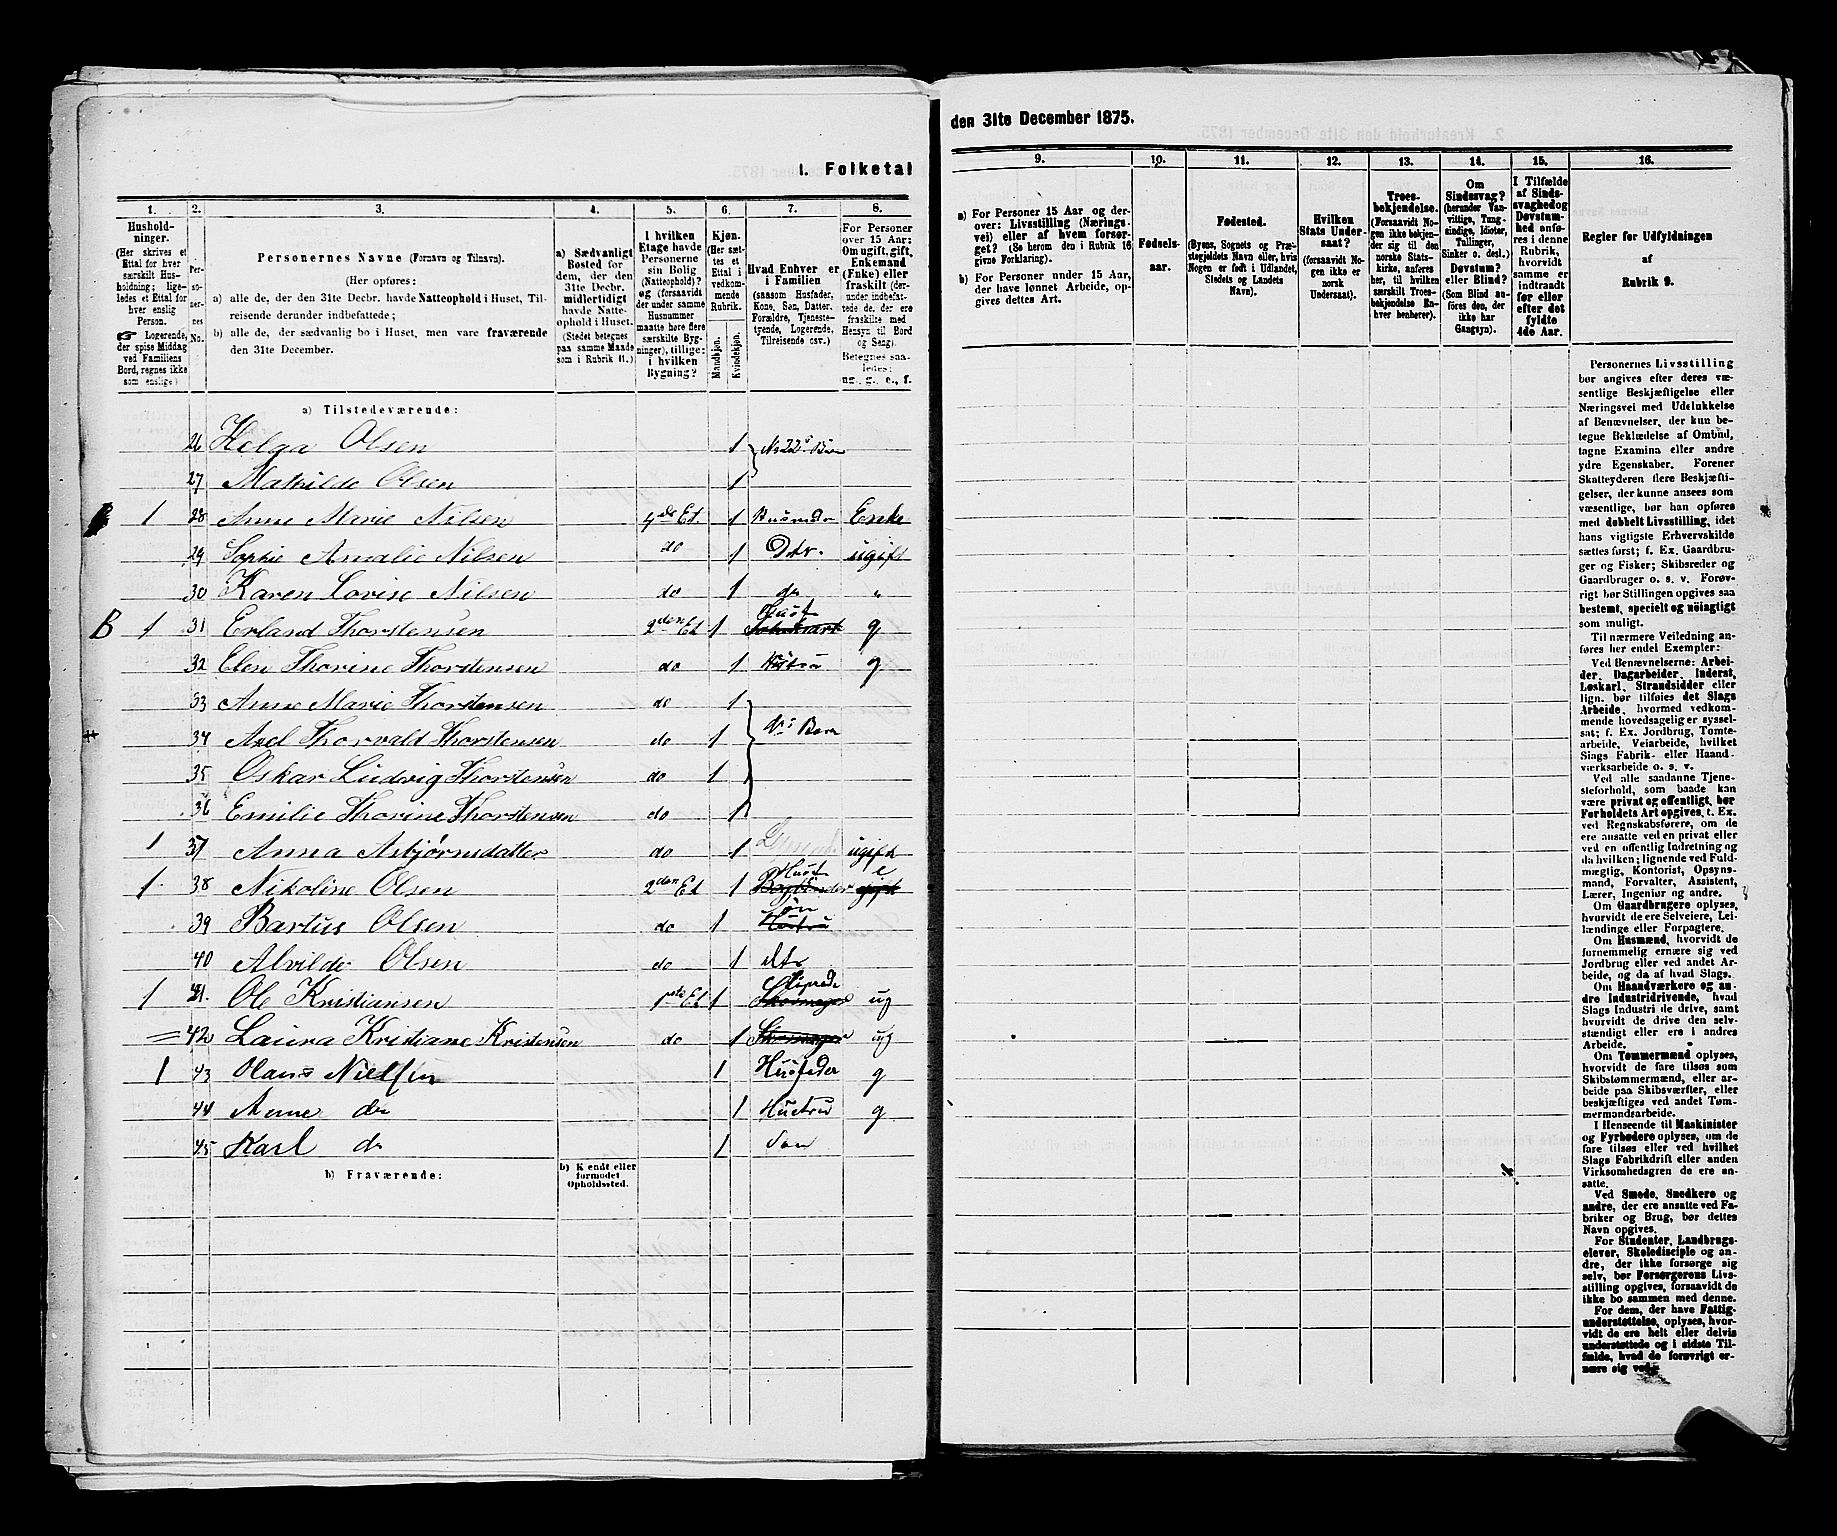 I. Folketal
1. 2. 3. 4. 5. 6. 7. 8.
Husholdninger.
(Her skrives et
Ettal for hver
særskilt Husholdning; ligeledes
et Ettal for
hver enslig
Person.
Logerende,
der spise Middag
ved Familiens
Bord, regnes ikke
som enslige)
Personernes No.
Personernes Navne (Fornavn og Tilnavn).
(Her opføres:
a) alle de, der den 31te Decbr. havde Natteophold i Huset, Tilreisende
derunder indbefattede;
b) alle de, der sædvanlig bo i Huset, men vare fraværende
den 31te December.
a) Sædvanligt
Bosted for
dem, der den
31te Decbr.
midlertidigt
havde Natteophold
i Huset.
(Stedet betegnes
paa samme Maade
som i Rubrik 11.)
I hvilken
Etage havde
Personerne
sin Bolig
(Natteophold)?
og (forsaavidt
der under samme
Husnummer
maatte høre flere
særskilte Bygninger),
tillige:
i hvilken
Bygning?
Kjøn.
(Her sættes
et
Ettal i
vedkommende
Rubrik.
Mandkjøn.
Kvindekjøn.
Hvad Enhver er
i Familien
(saasom Husfader,
Kone, Søn, Datter.
Forældre, Tjenestetyende,
Logerende,
Tilreisende csv.)
For Personer
over 15 Aar;
Om ugift, gift,
Enkemand
(Enke) eller
fraskilt (derunder
indbefattede
de, der ere
fraskilte med
Hensyn til Bord
og Seng).
Betegnes saaledes:
ug., g., e., f.
a) Tilstedeværende:
26 Helga Olsen 1 No 22s Børn
27 Mathilde Olsen 1
1 28 Anne Marie Nilsen Et. 1 Enke
29 Sophie Amalie Nilsen do 1 Dtr. ugift
30 Karen Lovise Nilsen do 1 do „
B 1 31 Erland Thorstensen 2den Et 1 g
32 Elen Thorine Thorstensen do 1 g
33 Anne Marie Thorstensen do 1
34 Axel Thorvald Thorstensen do 1 ds Børn
35 Oskar Ludvig Thorstensen do 1
36 Emilie Thorine Thorstensen do 1
1 37 Anna Asbjørnsdatter do 1 ugift
1 38 Nikoline Olsen 2den Et 1 Husf e
39 Bartus Olsen do 1 søn
40 Alvilde Olsen do 1 dtr
1 41. Ole Kristiansen 1ste Et 1 ug
= 42 Laura Kristiane Kristensen do 1 ug
1 43 Olaus Nielsen 1 Husfader g
44 Anne do 1 Hustru g
45 Karl do 1 Søn
b) Fraværende:
b) Kendt eller
formodet
Opholdssted.
den 31te December 1875.
9. 10. 11. 12. 13. 14. 15. 16.
a) For Personer 15 Aar og derover:
Livsstilling (Næringsvei)
eller af hvem forsørget?
(Se herom den i Rubrik 16
givne Forklaring).
b) For Personer under 15 Aar,
der have lønnet Arbeide, opgives
dettes Art.
Fødselsaar.
Fødested.
(Byens, Sognets og Præstegjeldets
Navn eller, hvis
Nogen er født i Udlandet,
Stedets og Landets
Navn).
Hvilken
Stats Undersaat?
(forsaavidt Nogen
ikke er
norsk
Undersaat).
Troesbekjendelse.
(Forsaavidt Nogen
ikke bekjender
sig til den
norske Statskirke,
anføres
her, til hvilken
særskilt Troesbekjendelse
Enhver
henhører).
Om
Sindssvag?
(herunder Vanvittige,
Tungsindige,
Idioter,
Tullinger,
Sinker o. desl.)
Døvstum?
eller Blind?
(Som Blind anføres
den, der
ikke har
Gangsyn).
I Tilfælde
af Sindssvaghed
og
Døvstumhed
anføres
i denne
Rubrik,
hvorvidt
samme er
indtraadt
før eller
efter det
fyldte
4de Aar.
Regler for Udfyldningen
af
Rubrik 9.
Personernes Livsstilling
bør angives efter deres væsentlige
Beskjæftigelse eller
Næringsvei med Udelukkelse
af Benævnelser, der kun betegne
Beklædelse af Ombud,
tagne Examina eller andre
ydre Egenskaber. Forener
Skatteyderen flere Beskjæftigelser,
der kunne ansees som
væsentlige, bør han opføres
med dobbelt Livsstilling, idet
hans vigtigste Erhvervskilde
sættes først; f. Ex. Gaardbruger
og Fisker; Skibsreder og
Gaardbruger o. s. v. Forøvrigt
bør Stillingen opgives saa
bestemt, specielt og nøiagtigt
som muligt.
Til nærmere Veiledning anføres
her endel Exempler:
Ved Benævnelserne: Arbeider,
Dagarbeider, Inderst,
Løskarl, Strandsidder eller
lign. bør tilføies det Slags
Arbeide, hvormed vedkommende
hovedsagelig er sysselsat;
f. Ex. Jordbrug, Tomtearbeide,
Veiarbeide, hvilket
Slags Fabrik- eller Haandværksarbeide
o. s. v.
Ved alle saadanne Tjenesteforhold,
som baade kan
være privat og offentligt, bør
Forholdets Art opgives, t. Ex.
ved Regnskabsførere, om de
ere ansatte ved en privat eller
ved en offentlig Indretning og
da hvilken; lignende ved Fuldmægtig,
Kontorist, Opsynsmand,
Forvalter, Assistent,
Lærer, Ingeniør og andre.
Om Gaardbrugere oplyses,
hvorvidt de ere Selveiere, Leilændinge
eller Forpagtere.
Om Husmænd, hvorvidt de
fornemmelig ernære sig ved
Jordbrug eller ved andet Arbeide,
og da af hvad Slags.
Om Haandværkere og andre
Industridrivende, hvad
Slags Industri de drive, samt
hvorvidt de drive den selvstændigt
eller ere i andres
Arbeide.
Om Tømmermænd oplyses,
hvorvidt de fare tilsøs som
Skibstømmermænd, eller arbeide
paa Skibsværfter, eller
beskjæftiges ved andet Tømmermandsarbeide.
I Henseende til Maskinister
og Fyrbødere oplyses, om de
fare tilsøs eller ved hvilket
Slags Fabrikdrift eller anden
Virksomhedsgren de ere ansatte.
Ved Smede, Snedkere og
andre, der ere ansatte ved Fabriker
og Brug, bør dettes
Navn opgives.
For Studenter, Landbrugselever,
Skoledisciple og andre,
der ikke forsørge sig
selv, bør Forsørgerens Livsstilling
opgives, forsaavidt de
ikke bo sammen med denne.
For dem, der have Fattigunderstøttelse,
oplyses, hvorvidt
de ere helt eller delvis
understøttede og i sidste Tilfælde,
hvad de forøvrigt ernære
sig ved.